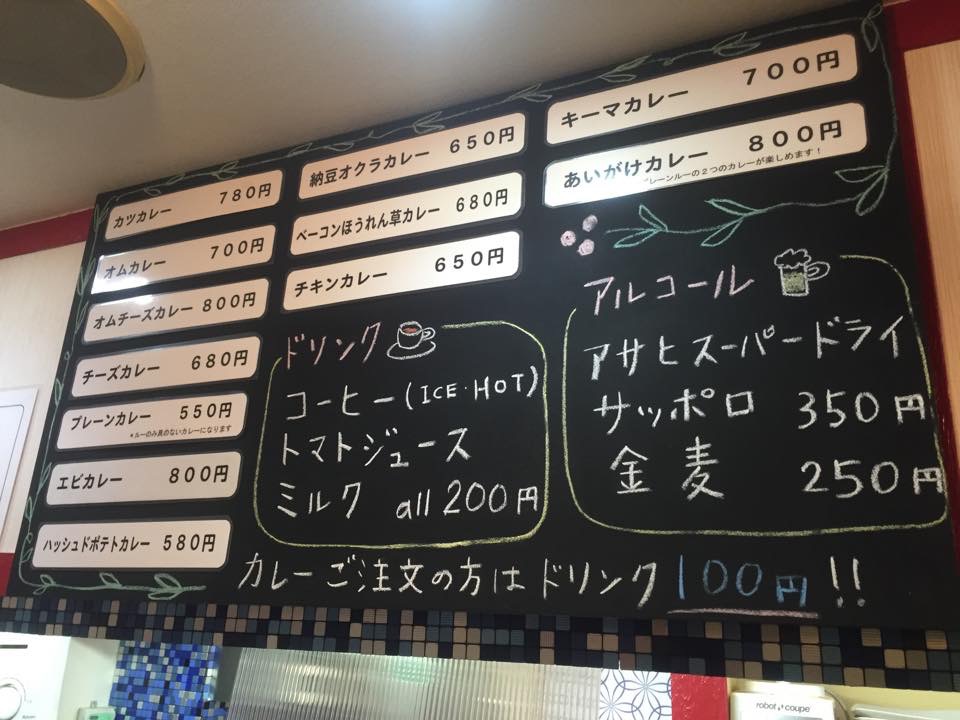 カツカレー 780円
オムカレー 700円
オムチーズカレー 800円
チーズカレー 680円
プレーンカレー 550円
*ルーのみ具のないカレーになります
エビカレー 800円
ハッシュドポテトカレー 580円
納豆オクラカレー 650円
ベーコンほうれん草カレー 680円
チキンカレー 650円
キーマカレー 700円
あいがけカレー 800円
レーンルーの2つのカレーが楽しめます!
ドリンク
コーヒー(ICE・HOT)
トマトジュース
ミルク all 200円
アルコール
アサヒスーパードライ
サッポロ 350円
金麦 250円
カレーご注文の方はドリンク100円!!
robot coupe